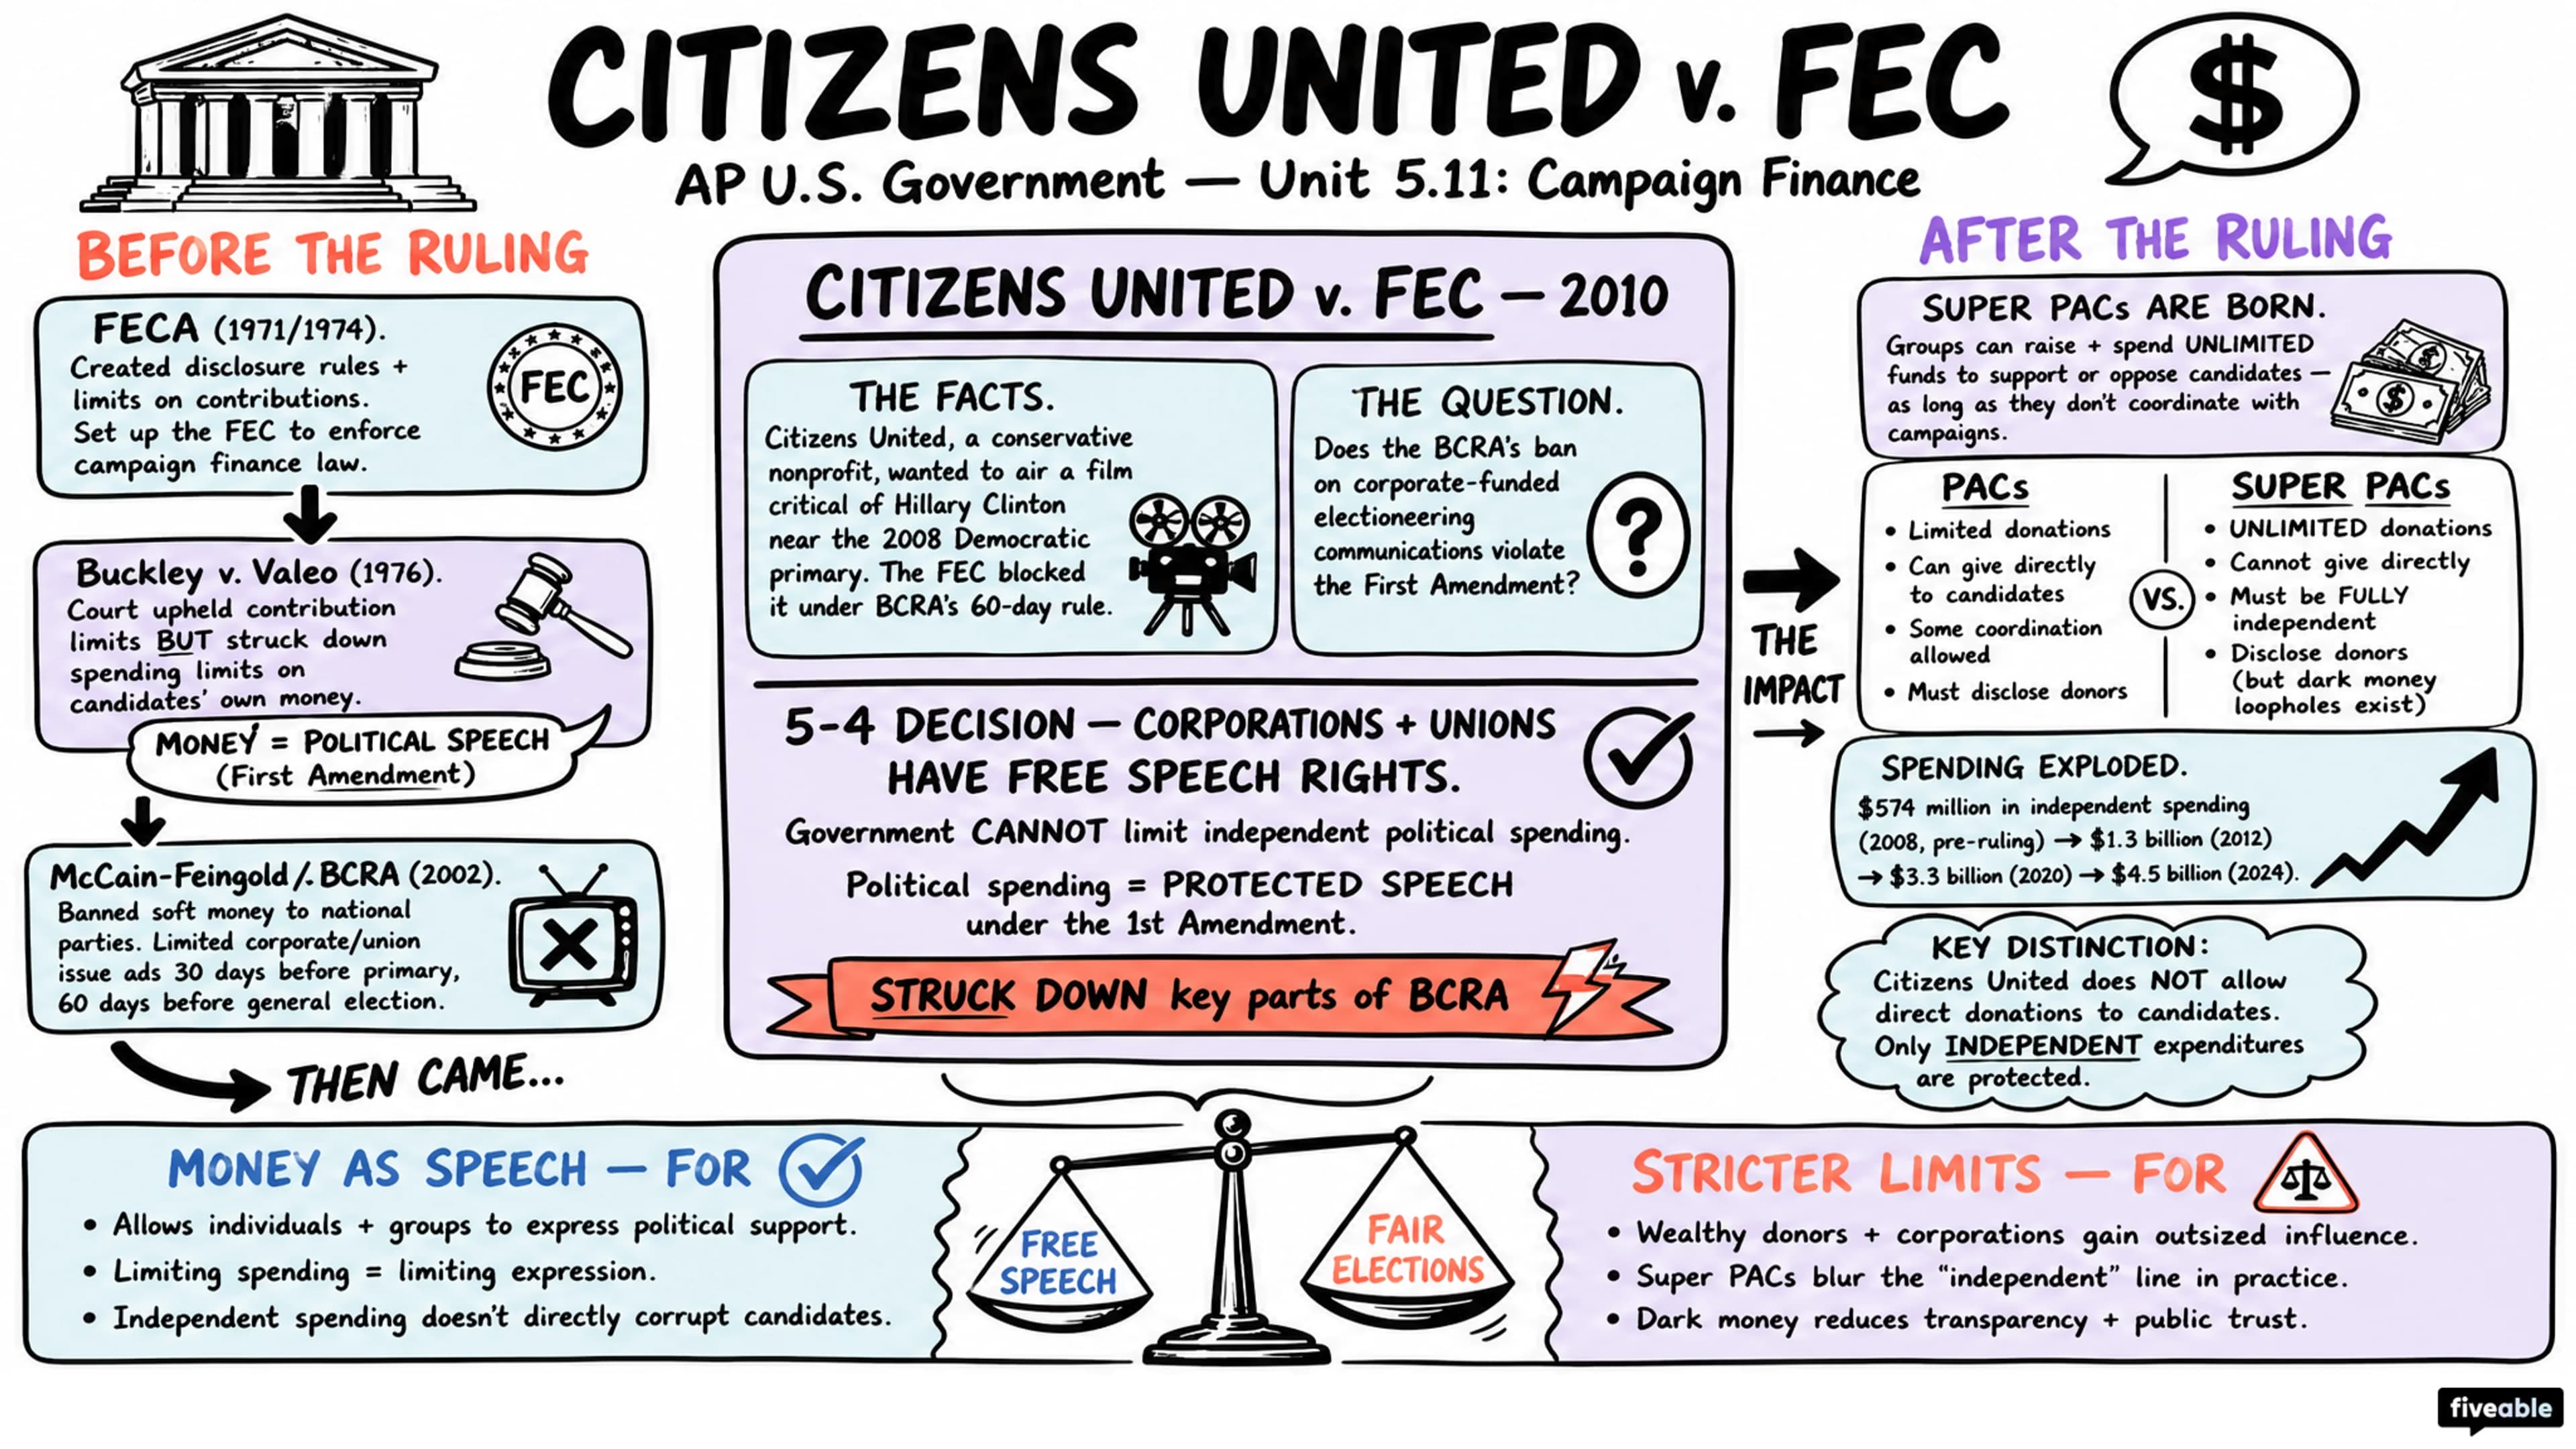 CITIZENS UNITED v. FEC
AP U.S. Government — Unit 5.11: Campaign Finance
$
BEFORE THE RULING
FECA (1971/1974).
Created disclosure rules +
limits on contributions.
Set up the FEC to enforce
campaign finance law.
FEC
Buckley v. Valeo (1976).
Court upheld contribution
limits BUT struck down
spending limits on
candidates' own money.
MONEY = POLITICAL SPEECH
(First Amendment)
McCain-Feingold /. BCRA (2002).
Banned soft money to national
parties. Limited corporate/union
issue ads 30 days before primary,
60 days before general election.
THEN CAME...
CITIZENS UNITED v. FEC — 2010
THE FACTS.
Citizens United, a conservative
nonprofit, wanted to air a film
critical of Hillary Clinton
near the 2008 Democratic
primary. The FEC blocked
it under BCRA's 60-day rule.
THE QUESTION.
Does the BCRA's ban
on corporate-funded
electioneering
communications violate
the First Amendment?
?
5-4 DECISION — CORPORATIONS + UNIONS
HAVE FREE SPEECH RIGHTS.
Government CANNOT limit independent political spending.
Political spending = PROTECTED SPEECH
under the 1st Amendment.
STRUCK DOWN key parts of BCRA
THE
IMPACT
→
AFTER THE RULING
SUPER PACs ARE BORN.
Groups can raise + spend UNLIMITED
funds to support or oppose candidates —
as long as they don't coordinate with
campaigns.
$
$
PACs
• Limited donations
• Can give directly
to candidates
• Some coordination
allowed
• Must disclose donors
VS.
SUPER PACs
• UNLIMITED donations
• Cannot give directly
• Must be FULLY
independent
• Disclose donors
(but dark money
loopholes exist)
SPENDING EXPLODED.
$574 million in independent spending
(2008, pre-ruling) → $1.3 billion (2012)
→ $3.3 billion (2020) → $4.5 billion (2024).
KEY DISTINCTION:
Citizens United does NOT allow
direct donations to candidates.
Only INDEPENDENT expenditures
are protected.
MONEY AS SPEECH — FOR
• Allows individuals + groups to express political support.
• Limiting spending = limiting expression.
• Independent spending doesn't directly corrupt candidates.
FREE
SPEECH
FAIR
ELECTIONS
STRICTER LIMITS — FOR
• Wealthy donors + corporations gain outsized influence.
• Super PACs blur the "independent" line in practice.
• Dark money reduces transparency + public trust.
fiveable